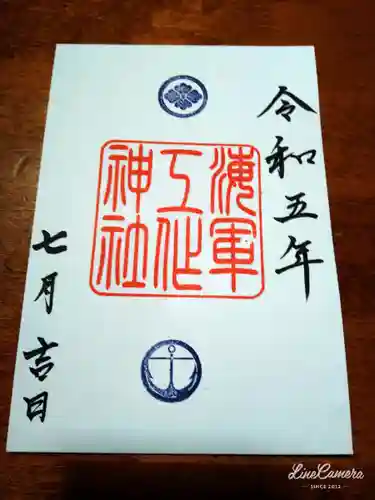 令和五年
海軍
工作
神社
七月 吉日
LineCamera
SINCE 2012